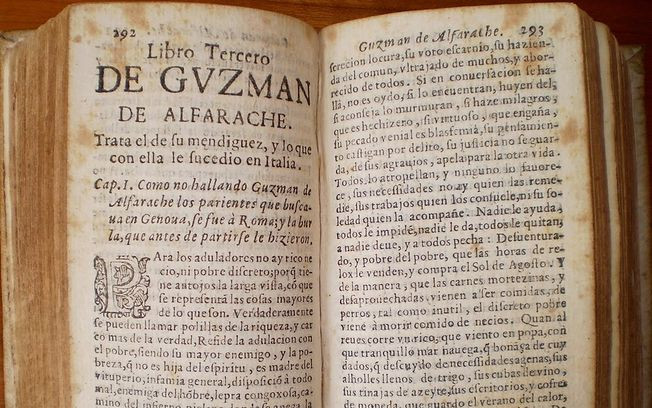 292
Libro Tercero
DE GVZMAN
DE ALFARACHE.
Trata el de su mendiguez, y lo que
con ella le sucedio en Italia.
Cap. I. Como no hallando Guzman de
Alfarache los parientes que busca-
ua en Genoua, se fue à Roma; y la bur
la, que antes de partirse le hizieron.
PAra los aduladores no ay rico ne
cio, ni pobre discreto, porq̃ tie-
ne antojos de larga vista, cõ que
se representã las cosas mayores
de lo que son. Verdaderamente
se pueden llamar polillas de la riqueza, y car
comas de la verdad, Reside la adulacion con
el pobre, siendo su mayor enemigo, y la po-
breza, q̃ no es hija del espiritu, es madre del
vituperio, infamia general, disposiciõ à todo
mal, enemiga del hõbre, lepra congoxosa, ca-
mino del infierno
Guzman de Alfarache. 293
serecion locura, su voto escarnio, su hazien-
da del comun, vltrajado de muchos, y abor-
recido de todos. Si en conuersacion se ha-
lla, no es oydo, si lo encuentran, huyen del;
si aconseja lo murmuran, si haze milagros,
que es hechizero, si virtuoso, que engaña,
su pecado venial es blasfemia, su pensamien-
to castigan por delito, su justicia no se guar-
da, de sus agrauios, apela para la otra vida.
Todos lo atropellan, y ninguno lo fauore-
ce, sus necessidades no ay quien las reme-
die, sus trabajos quien los consuele, ni su so-
ledad quien la acompañe. Nadie le ayuda,
todos le impidẽ, nadie le da, todos le quitan,
a nadie deue, y a todos pecha: Desuentura-
do, y pobre del pobre, que las horas de re-
lox le venden, y compra el Sol de Agosto. Y
de la manera, que las carnes mortezinas, y
desaprouechadas vienen a ser comidas, de
perros, tal como inutil, el discreto pobre
viene à morir comido de necios. Quan al
reues corre vn rico, que viento en popa, con
que tranquilo mar nauega, q̃ bonança de cuy
dados, q̃ descuydo de necessidades agenas, sus
alholies llenos de trigo, sus cubas de vino,
sus tinajas de azeyte, sus escritorios, y cofres
de moneda, que guardado el verano del calor